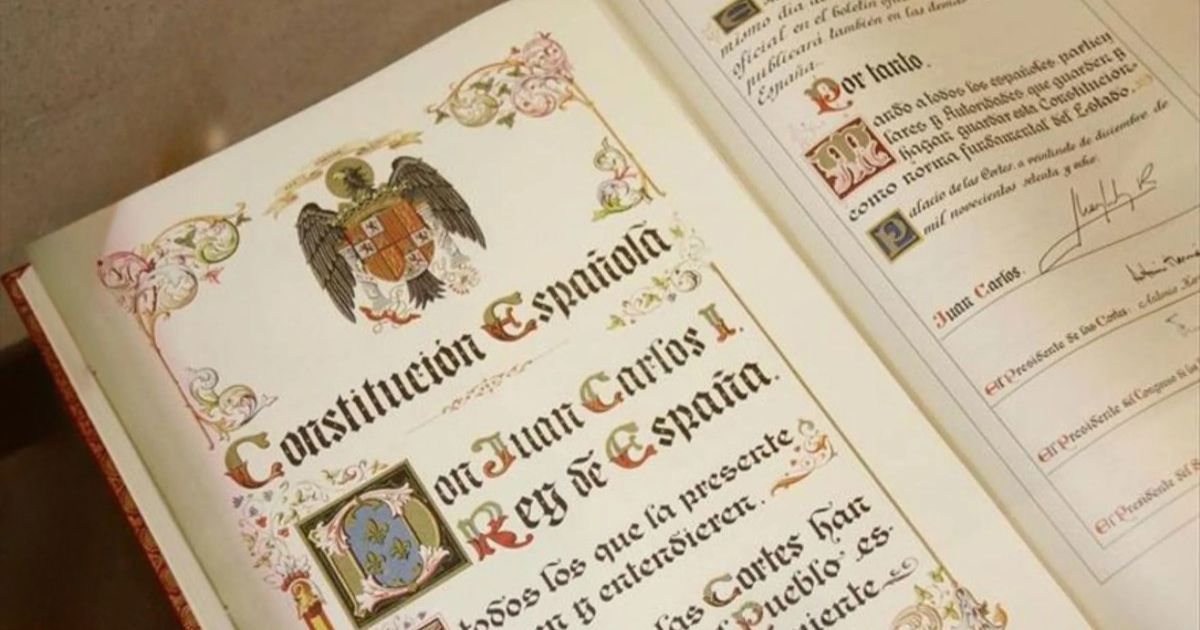 Constitución Española
Don Juan Carlos I.
Rey de España.
todos los que la presente
n y entendieren.
las Cortes han
Pueblo es-
niente
mismo día de
oficial en el boletín
publicará también en las demás
España.
Por tanto.
Mando a todos los españoles particu
lares y Autoridades que guarden y
hagan guardar esta Constitución
como norma fundamental del Estado.
Palacio de las Cortes, a veintisiete de diciembre de
mil novecientos setenta y ocho.
Juan Carlos.
El Presidente de las Cortes. Antonio
El Presidente del Congreso
El Presidente del